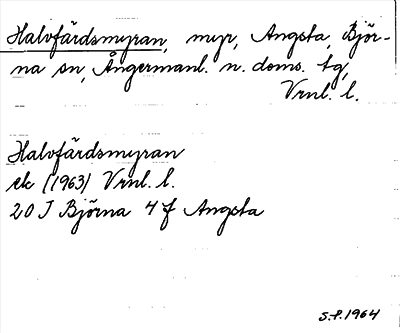 Halvfärdsmyran, myr, Angsta, Björ-
na sn, Ångermanl. n. doms. tg,
Vrnl. l.
Halvfärdsmyran
ek (1963) Vrnl. l.
20 J Björna 4 f Angsta
S.P. 1964